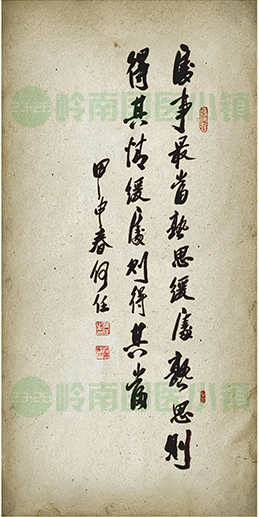 處事最當熟思緩處熟思則
得其情緩處則得其當
甲申春何任
岭南国医小镇
岭南国医小镇